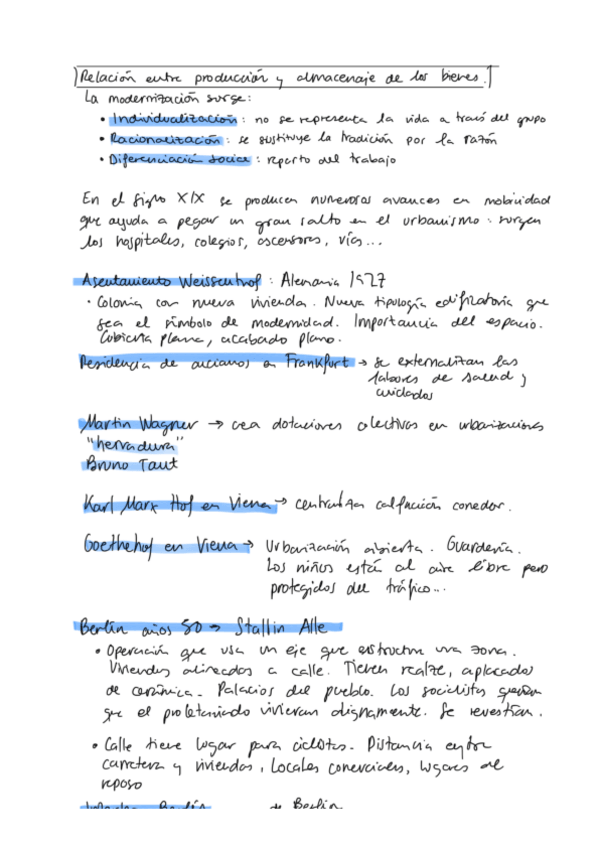 Relación entre producción y almacenaje de los bienes.
La modernización surge:
• Individualización: no se representa la vida a través del grupo
• Racionalización: se sustituye la tradición por la razón
• Diferenciación social: reparto del trabajo
En el siglo XIX se producen numerosos avances en mobilidad
que ayuda a pegar un gran salto en el urbanismo: surgen
los hospitales, colegios, ascensores, vías...
Asentamiento Weissenhof: Alemania 1927
• Colonia con nueva vivienda. Nueva tipología edificatoria que
sea el símbolo de modernidad. Importancia del espacio.
Cubierta plana, acabado plano.
Residencia de ancianos en Frankfurt → se externalizan las
labores de salud y
cuidados
Martin Wagner → crea dotaciones colectivas en urbanizaciones
"herradura"
Bruno Taut
Karl Marx Hof en Viena → centralizan calefacción comedor.
Goethehof en Viena → Urbanización abierta. Guardería.
Los niños están al aire libre pero
protegidos del tráfico...
Berlín años 50 → Stallin Alle
• Operación que usa un eje que estructura una zona.
Viviendas alineadas a calle. Tienen realze, aplacados
de cerámica. Palacios del pueblo. Los socialistas querían
que el proletariado vivieran dignamente. Se revestían.
• Calle tiene lugar para ciclistas. Distancia entre
carretera y viviendas, locales comerciales, lugares de
reposo
Berlín de Berlín